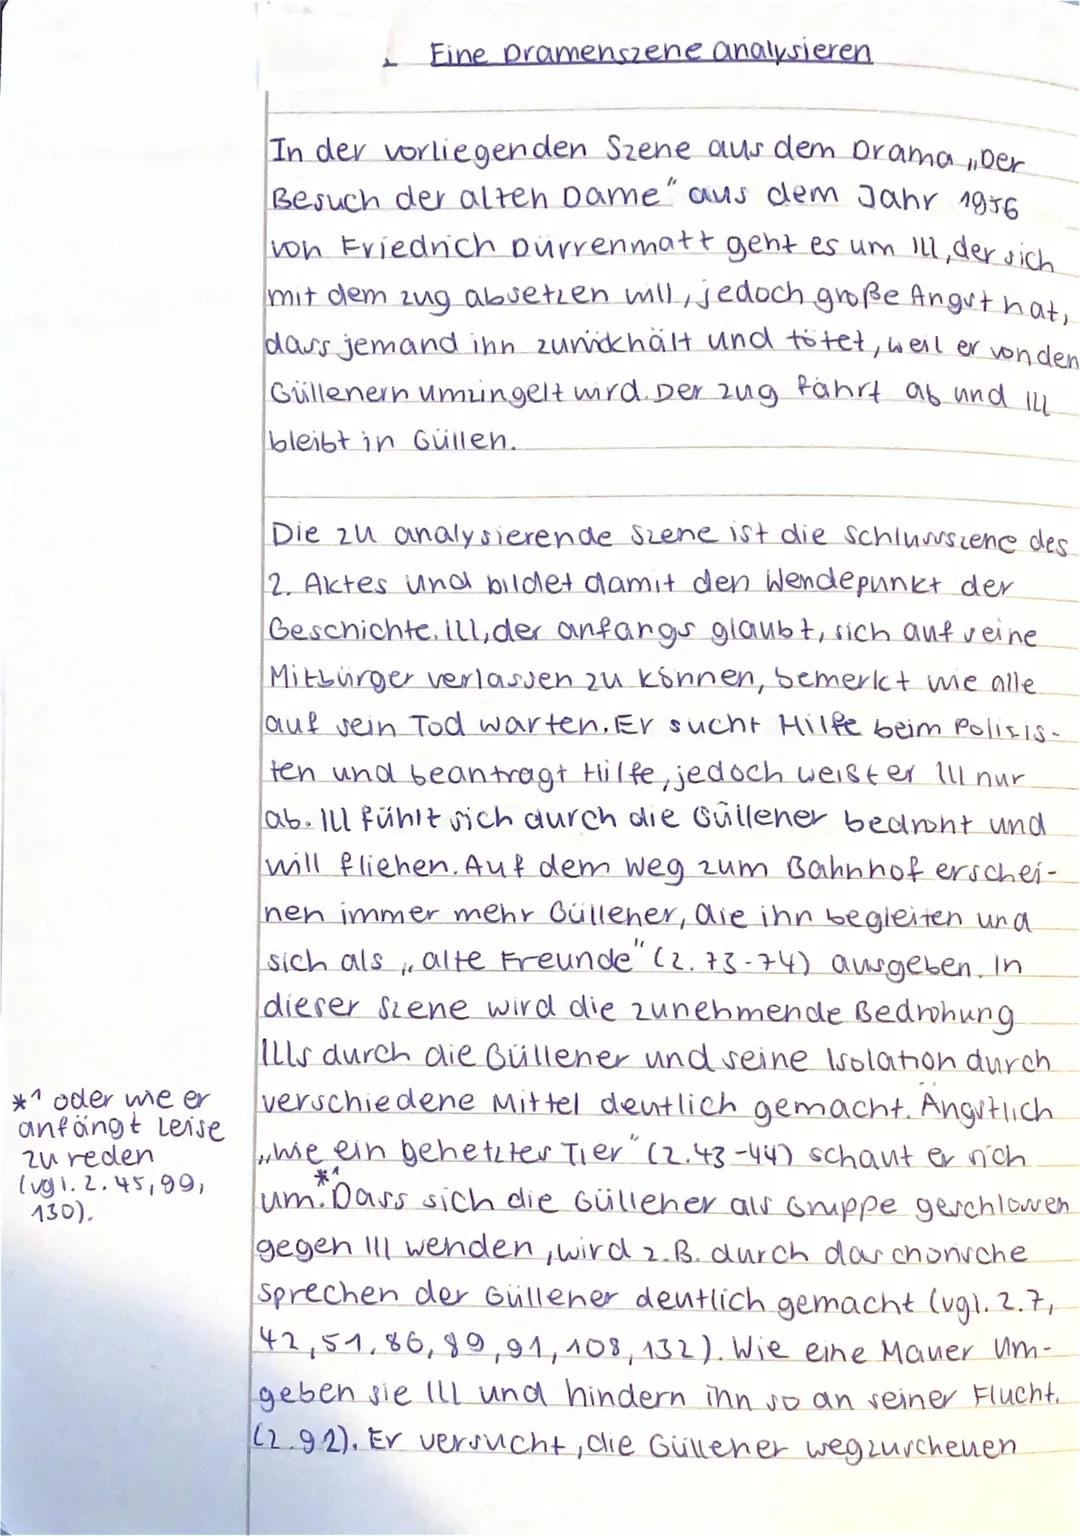 Eine Dramenszene analysieren
In der vorliegenden Szene aus dem Drama „Der
Besuch der alten Dame" aus dem Jahr 1956
von Friedrich Dürrenmatt geht es um Ill, der sich
mit dem Zug absetzen will, jedoch große Angst hat,
dass jemand ihn zurückhält und tötet, weil er von den
Güllenern umzingelt wird. Der Zug fährt ab und Ill
bleibt in Güllen.
Die zu analysierende Szene ist die Schlussszene des
2. Aktes und bildet damit den Wendepunkt der
Geschichte. Ill, der anfangs glaubt, sich auf seine
Mitbürger verlassen zu können, bemerkt wie alle
auf sein Tod warten. Er sucht Hilfe beim Polizis-
ten und beantragt Hilfe, jedoch weist er Ill nur
ab. Ill fühlt sich durch die Güllener bedroht und
will fliehen. Auf dem Weg zum Bahnhof erschei-
nen immer mehr Güllener, die ihn begleiten und
sich als „alte Freunde" (Z. 73-74) ausgeben. In
dieser Szene wird die zunehmende Bedrohung
Ills durch die Güllener und seine Isolation durch
verschiedene Mittel deutlich gemacht. Ängstlich
„wie ein gehetztes Tier" (Z. 43-44) schaut er sich
um.*1 Dass sich die Güllener als Gruppe geschlossen
gegen Ill wenden, wird z.B. durch das chorische
Sprechen der Güllener deutlich gemacht (vgl. Z. 7,
42, 51, 86, 89, 91, 108, 132). Wie eine Mauer um-
geben sie Ill und hindern ihn so an seiner Flucht.
(Z. 92). Er versucht, die Güllener wegzuscheuen
*1 oder wie er
anfängt leise
zu reden
(vgl. Z. 45, 99,
130).